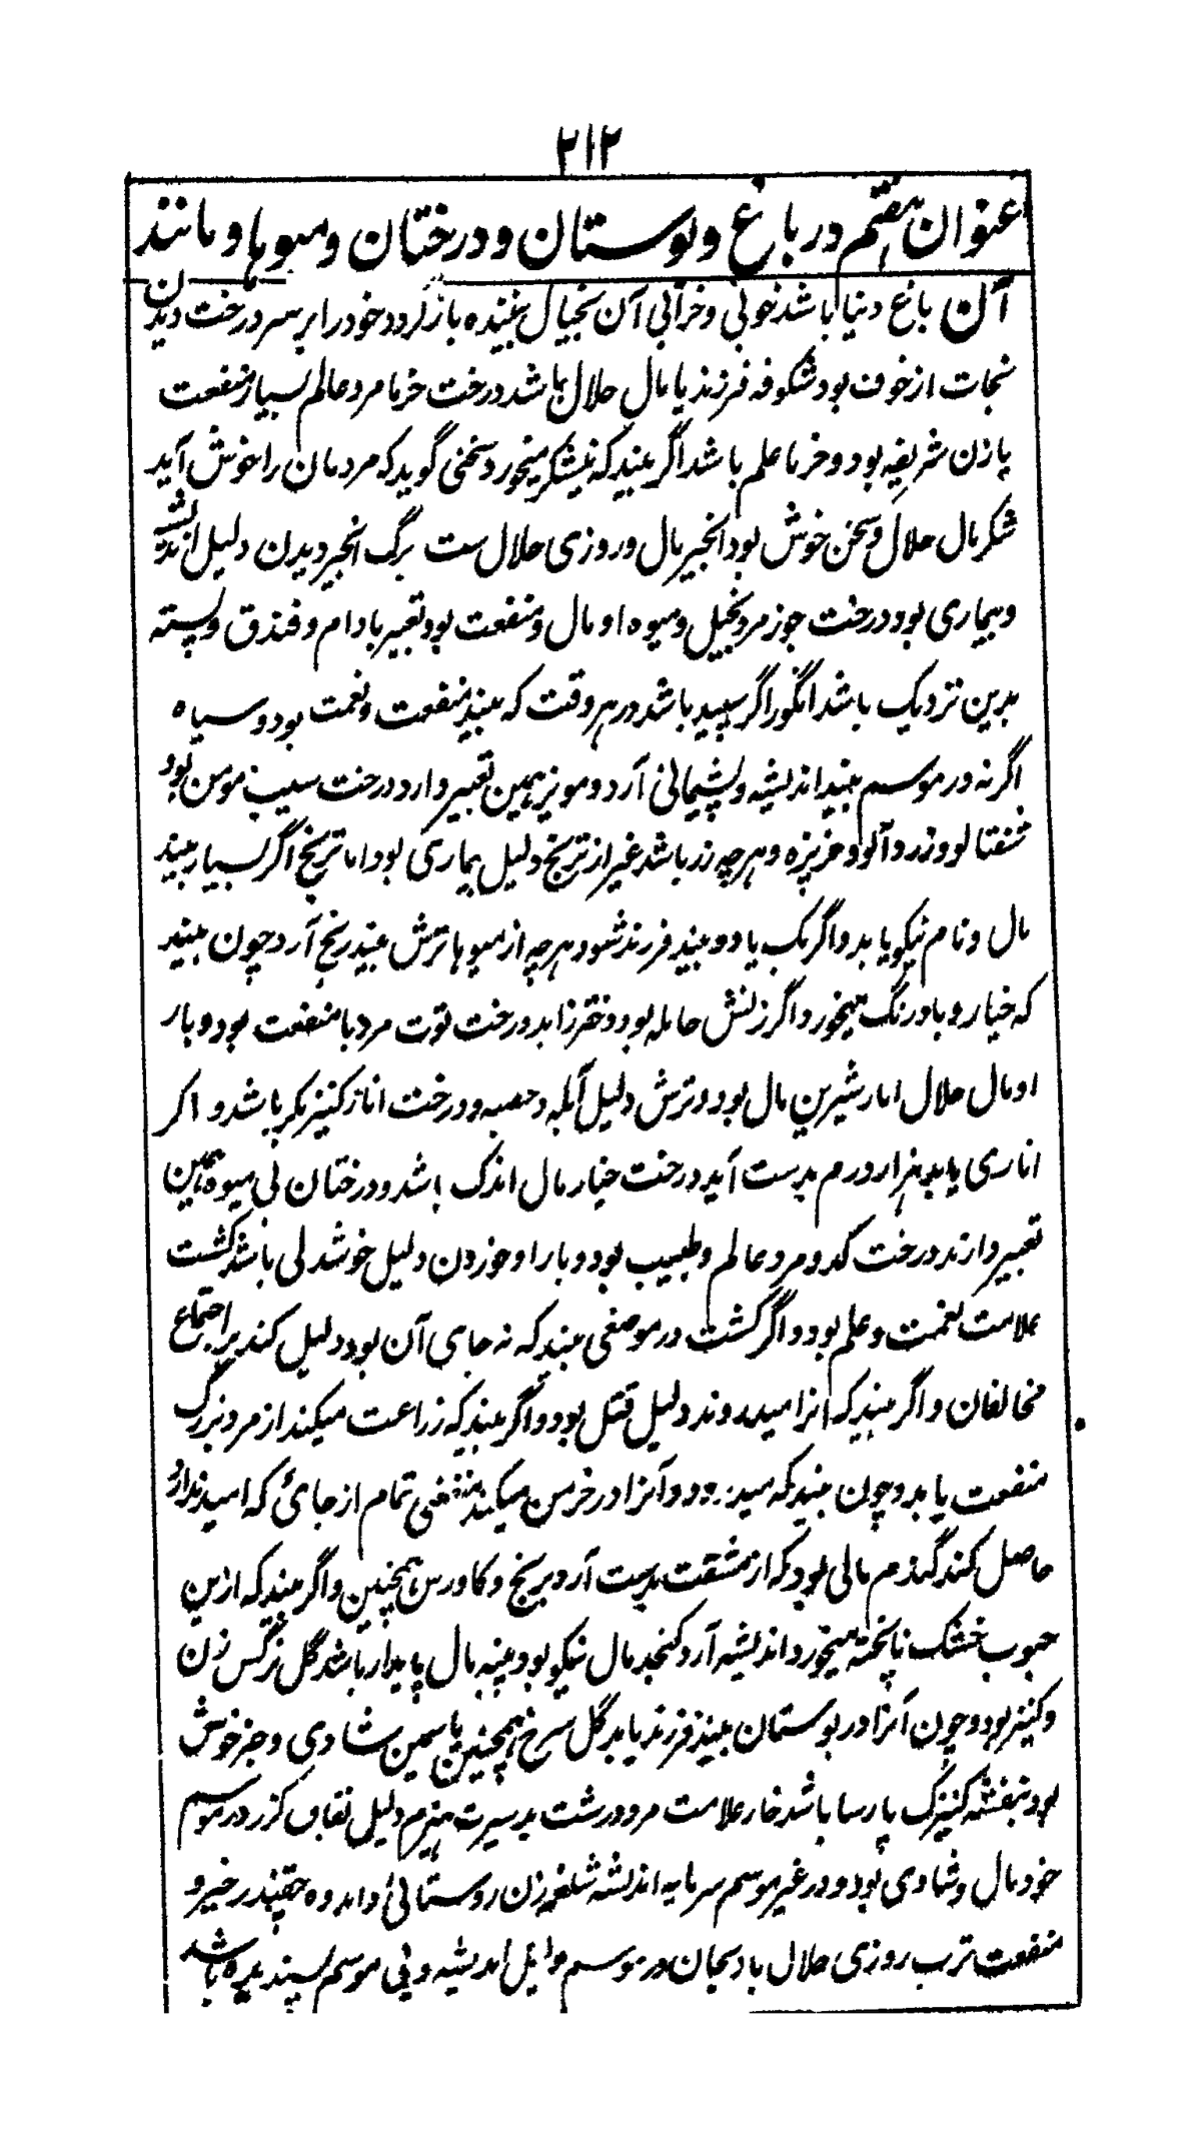 ۲۱۲
عنوان هفتم در باغ و بوستان و درختان و میوها و مانند
آن باغ دنیا باشد خوبی و خرابی آن بخیال بیننده باز گردد خود را بر سر درخت دیدن
نجات از خوف بود شکوفه فرزند یا مال حلال باشد درخت خرما مرد عالم بسیار منفعت
یا زن شریفه بود و خرما علم باشد اگر بیند که نیشکر میخورد سخنی گوید که مردمان را خوش آید
شکر مال حلال و سخن خوش بود انجیر مال و روزی حلال ست برگ انجیر دیدن دلیل اندیشه
و بیماری بود درخت جوز مرد بخیل و میوه او مال و منفعت بود تعبیر بادام و فندق و پسته
بدین نزدیک باشد انگور اگر سپید باشد در هر وقت که بیند منفعت و نعمت بود و سیاه
اگر نه در موسم بیند اندیشه و پشیمانی آرد و مویز همین تعبیر دارد درخت سیب مومن بود
شفتالو و زردآلو و خربزه و هرچه زرد باشد غیر از ترنج دلیل بیماری بود اما ترنج اگر بسیار بیند
مال و نام نیکو یابد و اگر یک یا دو بیند فرزند شود هرچه از میوها ترش بیند رنج آرد چون بیند
که خیار و بادرنگ میخورد اگر زنش حامله بود دختر زاید درخت توت مرد با منفعت بود و بار
او مال حلال انار شیرین مال بود و ترش دلیل آبله و حصبه و درخت انار کنیز بکر باشد و اگر
اناری یابد هزار درم بدست آید درخت خیار مال اندک باشد و درختان بی میوه همین
تعبیر دارند درخت کدو مرد عالم و طبیب بود و بار او خوردن دلیل خوشدلی باشد کشت
علامت نعمت و علم بود و اگر کشت در موضعی بیند که نه جای آن بود دلیل کند بر اجتماع
مخالفان و اگر بیند که آنرا میدروند دلیل قتل بود و اگر بیند که زراعت میکند از مرد بزرگ
منفعت یابد و چون بیند که میدرود و آنرا در خرمن میکند منفعتی تمام از جائی که امید ندارد
حاصل کند گندم مالی بود که از مشقت بدست آرد برنج و کاورس همچنین و اگر بیند که ازین
حبوب خشک ناپخته میخورد اندیشه آرد کنجد مال نیکو بود پنبه مال پایدار باشد گل نرگس زن
و کنیز بود و چون آنرا در بوستان بیند فرزند یابد گل سرخ همچنین یاسمین شادی و خبر خوش
بود بنفشه کنیزک پارسا باشد خار علامت مرد درشت بدسیرت هیزم دلیل نفاق گزر در موسم
خود مال و شادی بود و در غیر موسم سرمایه اندیشه شلغم زن روستائی و اندوه چقندر خیر و
منفعت ترب روزی حلال بادنجان در موسم دلیل اندیشه و بی موسم پسندیده باشد